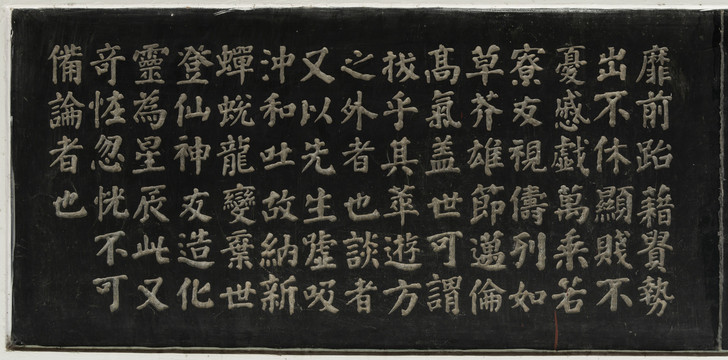 靡前跆藉貴勢
出不休顯賤不
憂慼戯萬乗若
寮友視儔列如
草芥雄節邁倫
髙氣盖世可謂
拔乎其萃遊方
之外者也談者
又以先生嘘吸
沖和吐故納新
蟬蛻龍變棄世
登仙神友造化
靈為星辰此又
奇恠忽恍不可
備論者也